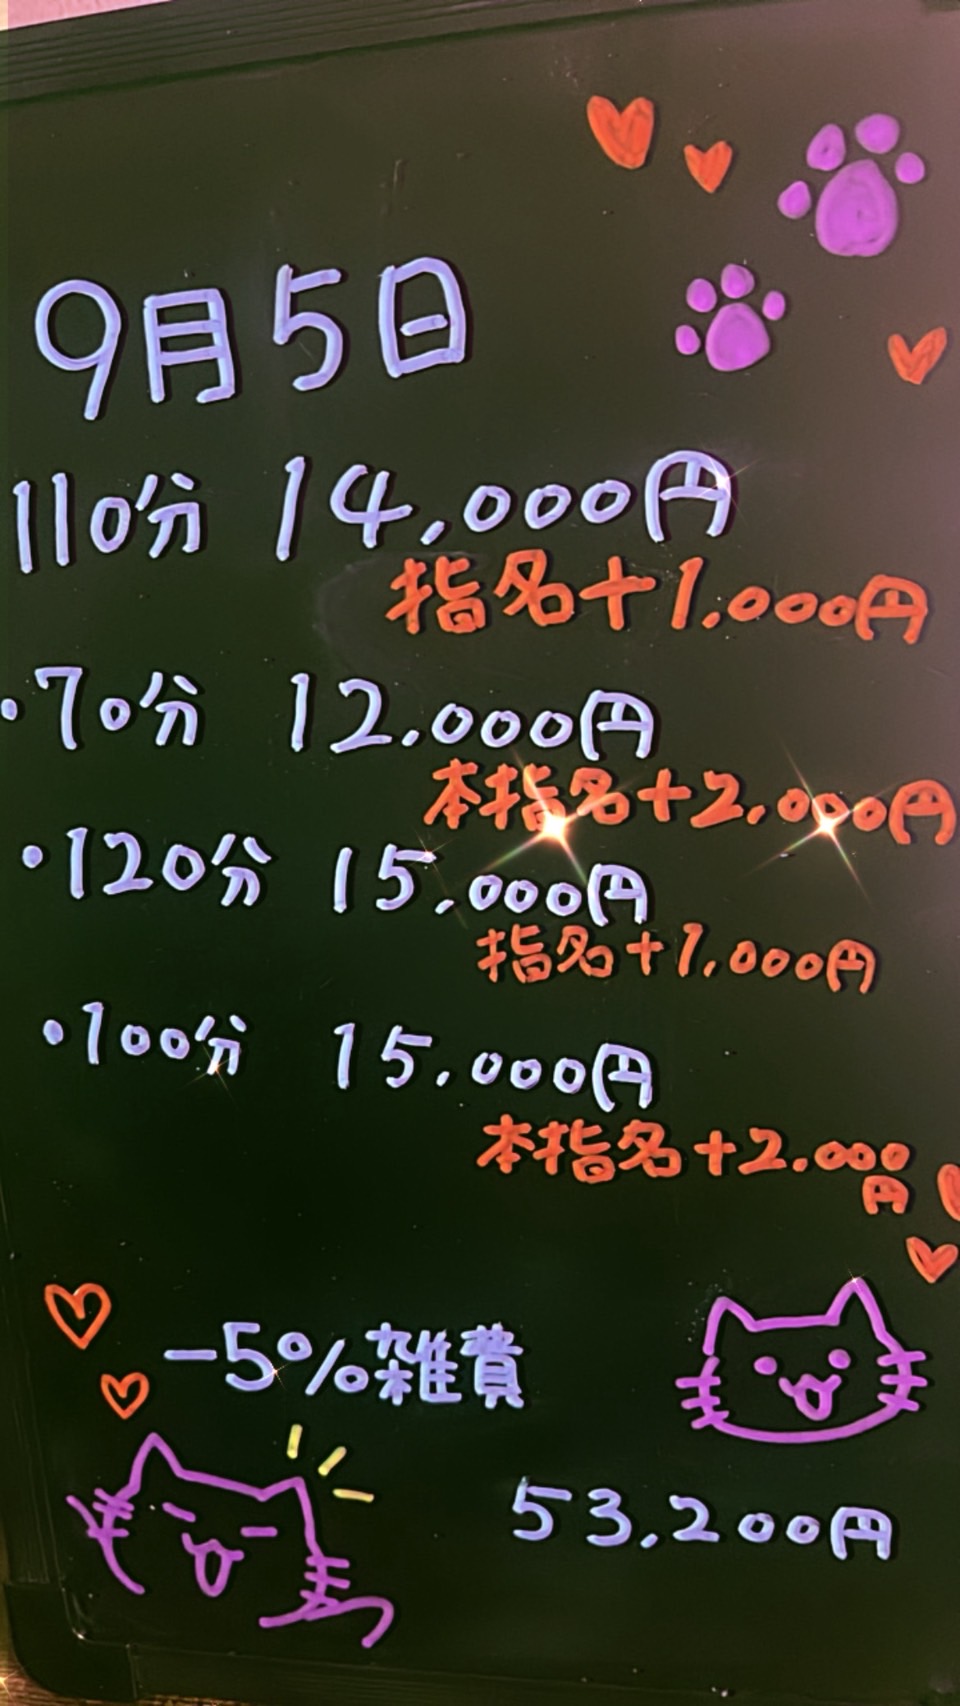 9月5日
110分 14,000円
指名+1,000円
・70分 12.000円
本指名+2,000円
・120分 15,000円
指名+1,000円
・100分 15.000円
本指名+2.000
円
-5%雑費
53,200円